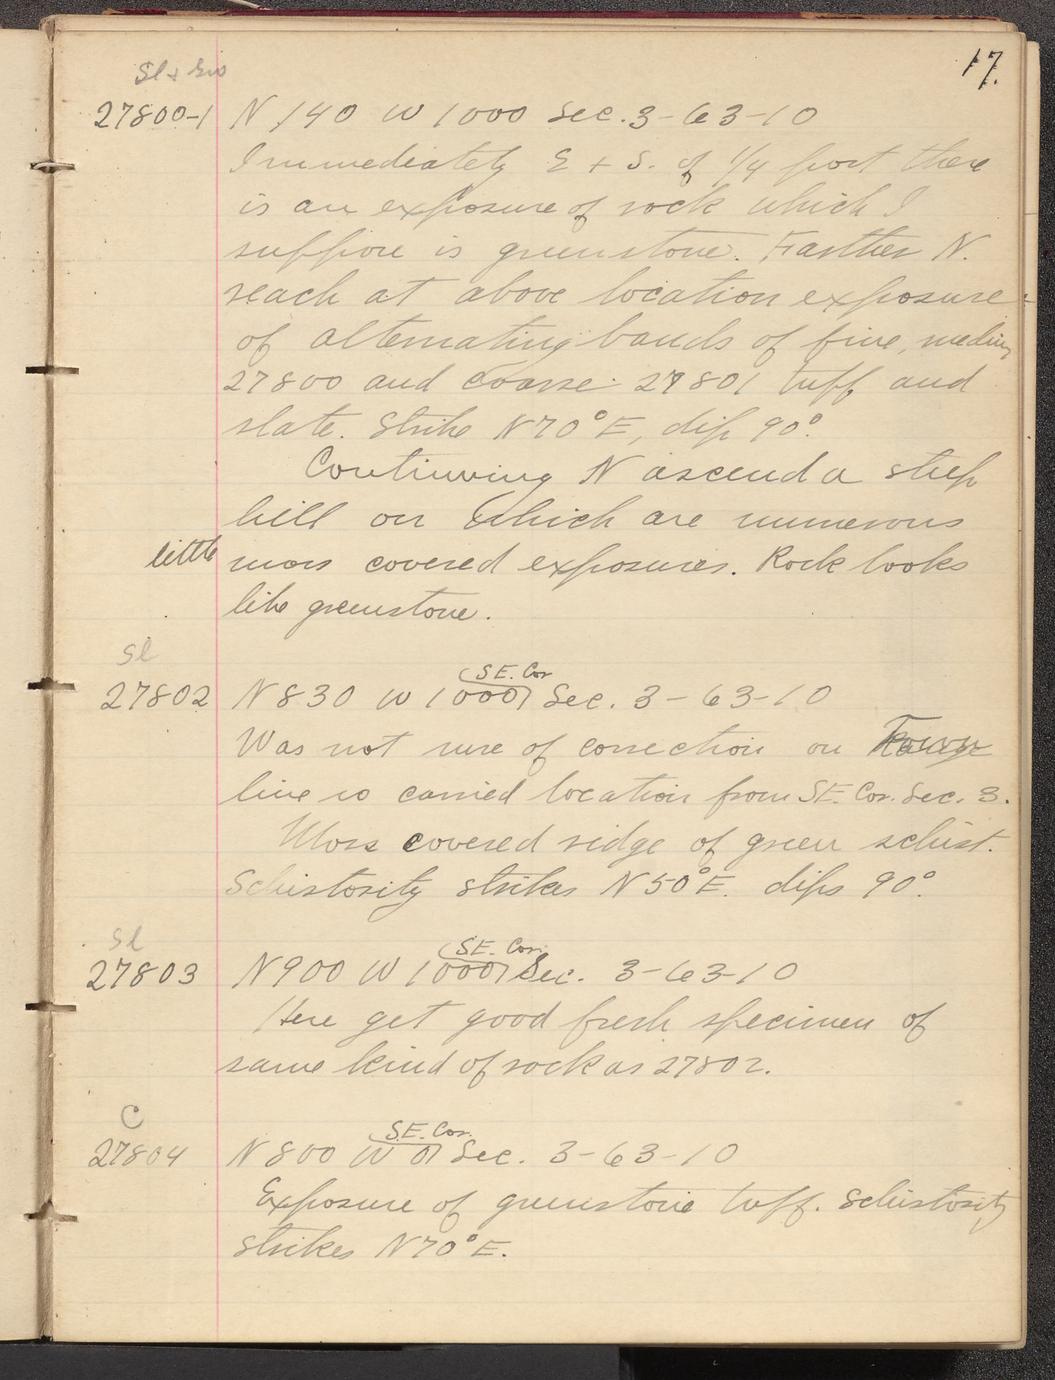 17.
Sl + Grw
27800-1 N 140 W 1000 Sec. 3-63-10
Immediately E + S. of 1/4 post there
is an exposure of rock which I
suppose is greenstone. Farther N.
reach at above location exposure
of alternating bands of fine, medium
27800 and coarse 27801 tuff and
slate. Strike N70°E, dip 90°.
Continuing N ascend a steep
hill on which are numerous
little moss covered exposures. Rock looks
like greenstone.
Sl
(SE. Cor
27802 N 830 W 1000) Sec. 3-63-10
Was not sure of correction on Range
line so carried location from SE. Cor. Sec. 3.
Moss covered ridge of green schist.
Schistosity strikes N50°E. dips 90°.
Sl
(SE. Cor.
27803 N900 W 1000) Sec. 3-63-10
Here get good fresh specimen of
same kind of rock as 27802.
C
(S.E. Cor.
27804 N 800 W 0) Sec. 3-63-10
Exposure of greenstone tuff. Schistosity
strikes N70°E.